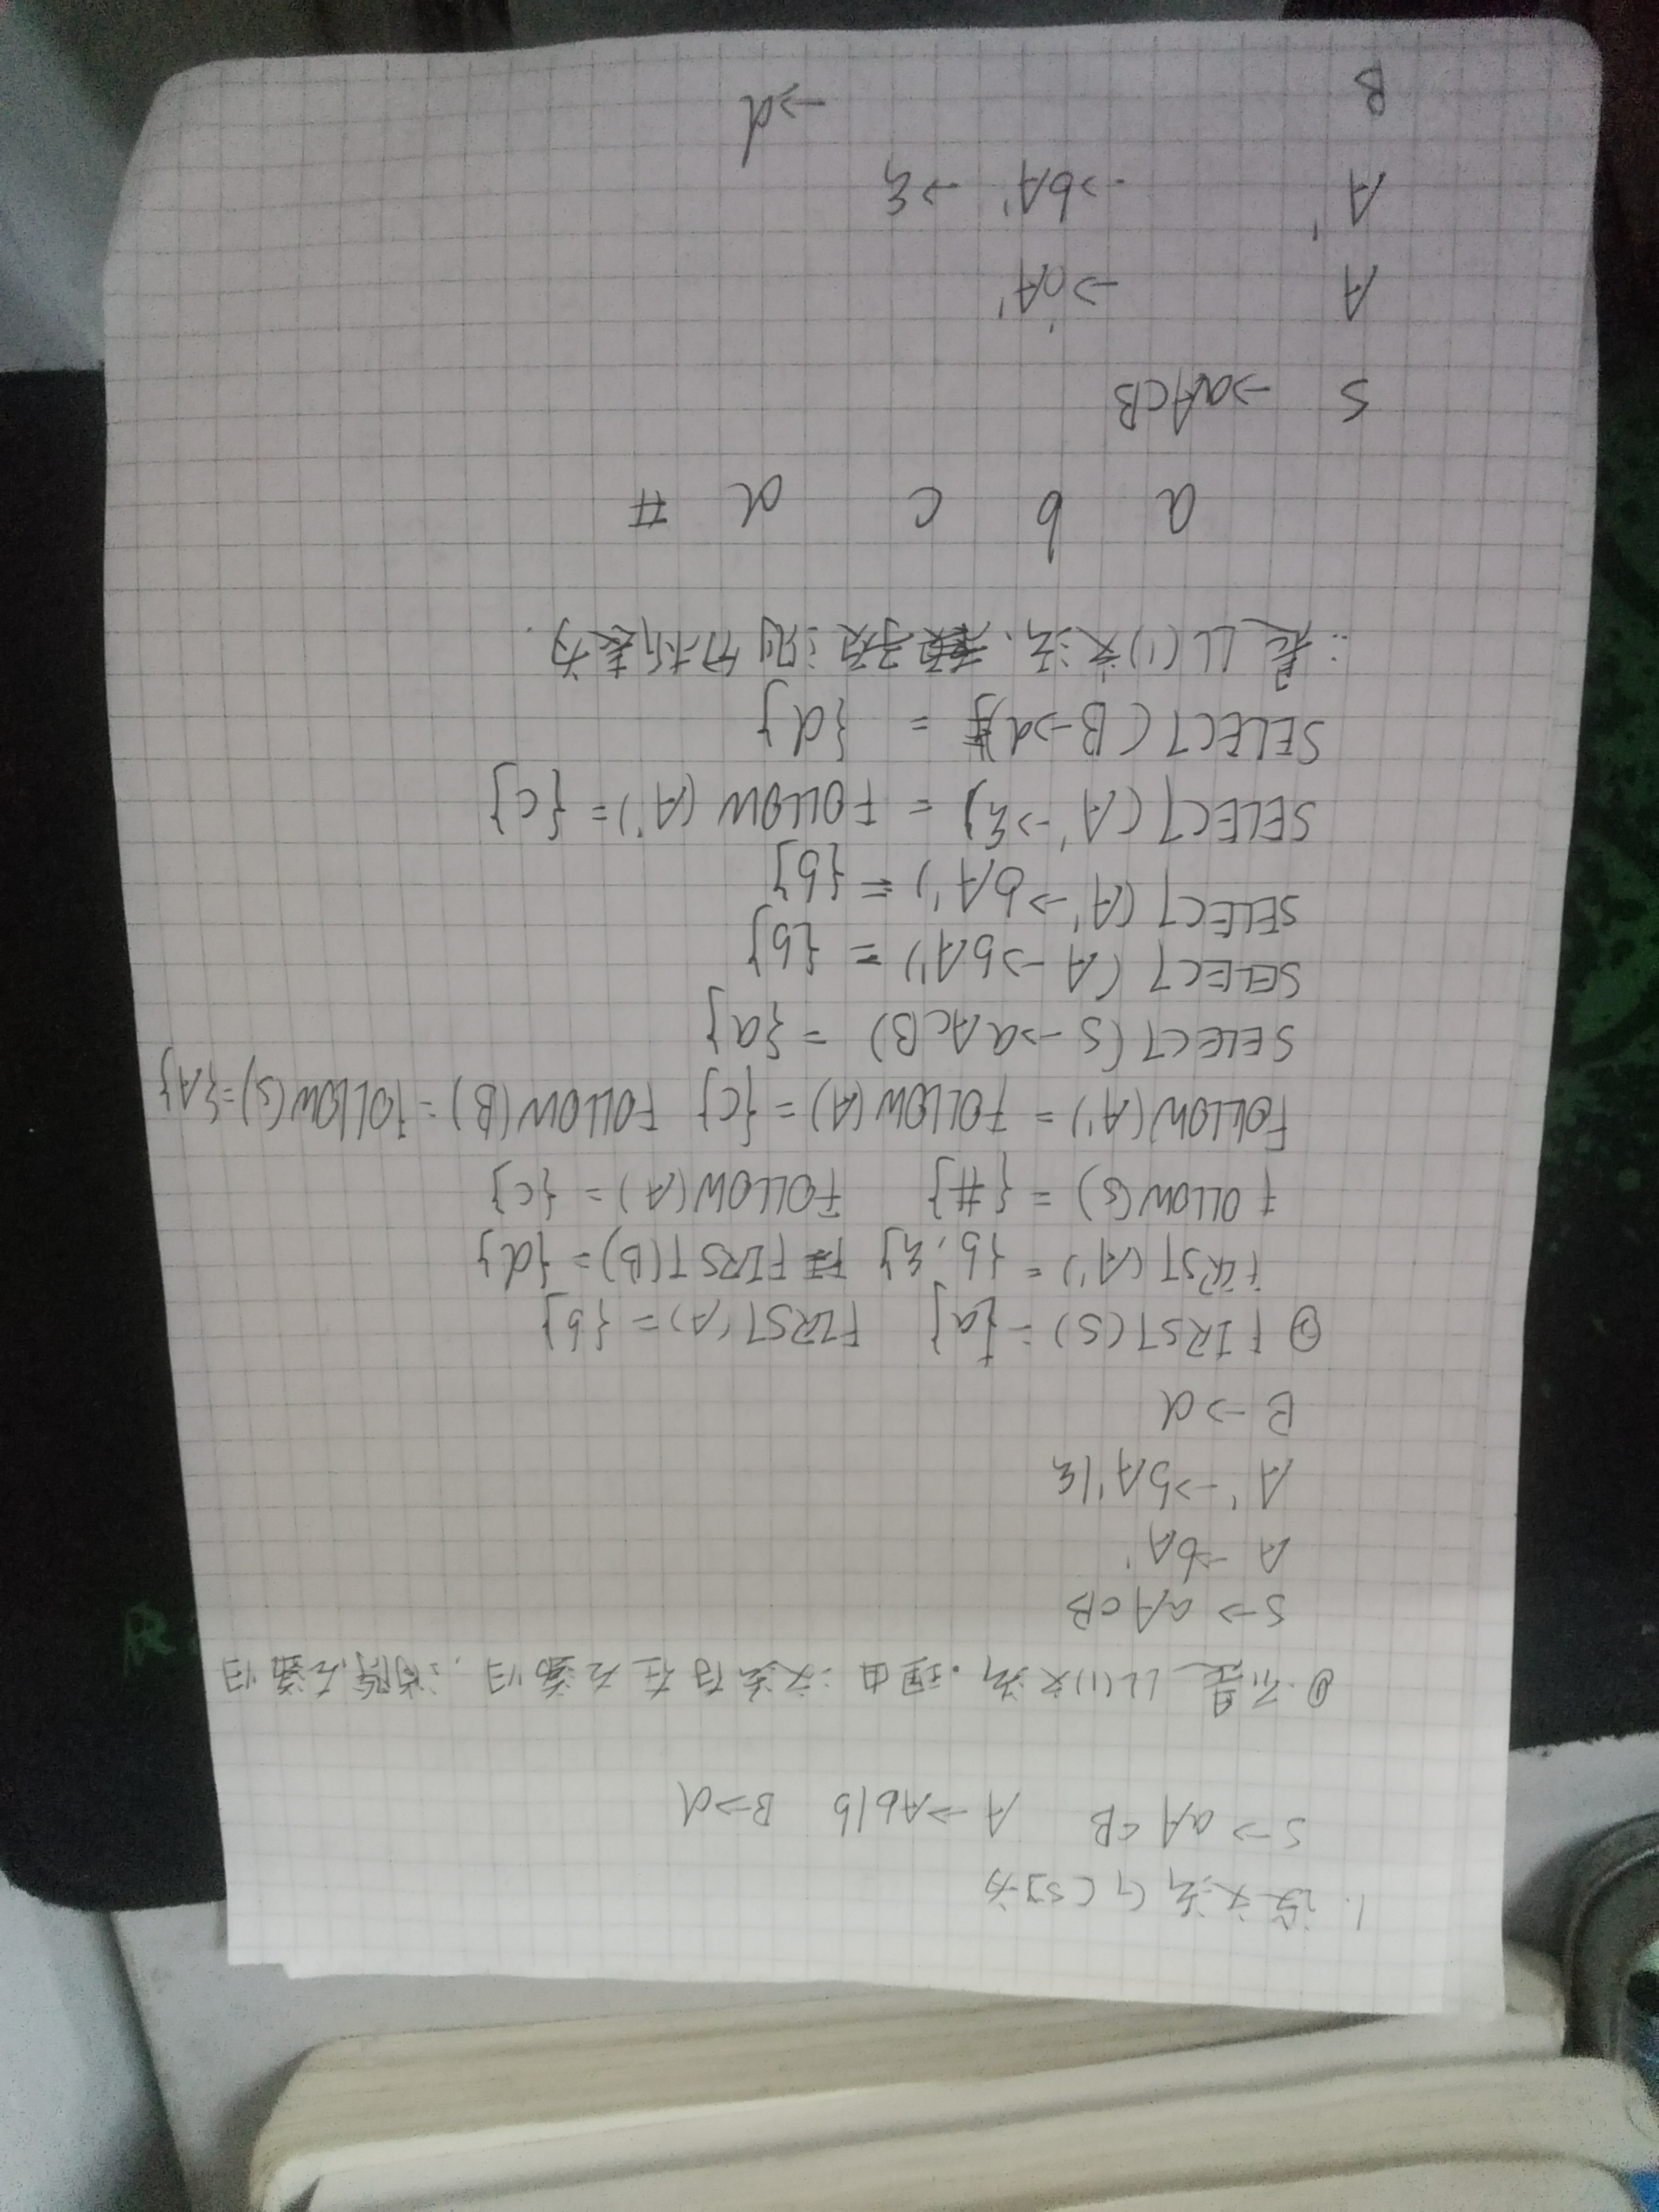 1. 设文法G[S]为
S→aAcB A→Ab|b B→d
①.不是LL(1)文法.理由:文法存在左递归,消除左递归
S→aAcB
A→bA'
A'→bA'|ε
B→d
② FIRST(S)={a} FIRST(A)={b}
FIRST(A')={b,ε} FIRST(B)={d}
FOLLOW(S)={#} FOLLOW(A)={c}
FOLLOW(A')=FOLLOW(A)={c} FOLLOW(B)=FOLLOW(S)={A}
SELECT(S→aAcB)={a}
SELECT(A→bA')={b}
SELECT(A'→bA')={b}
SELECT(A'→ε)=FOLLOW(A')={c}
SELECT(B→d)={d}
∴是LL(1)文法, 预测分析表为.
a b c d #
S →aAcB
A →bA'
A' →bA' →ε
B →d